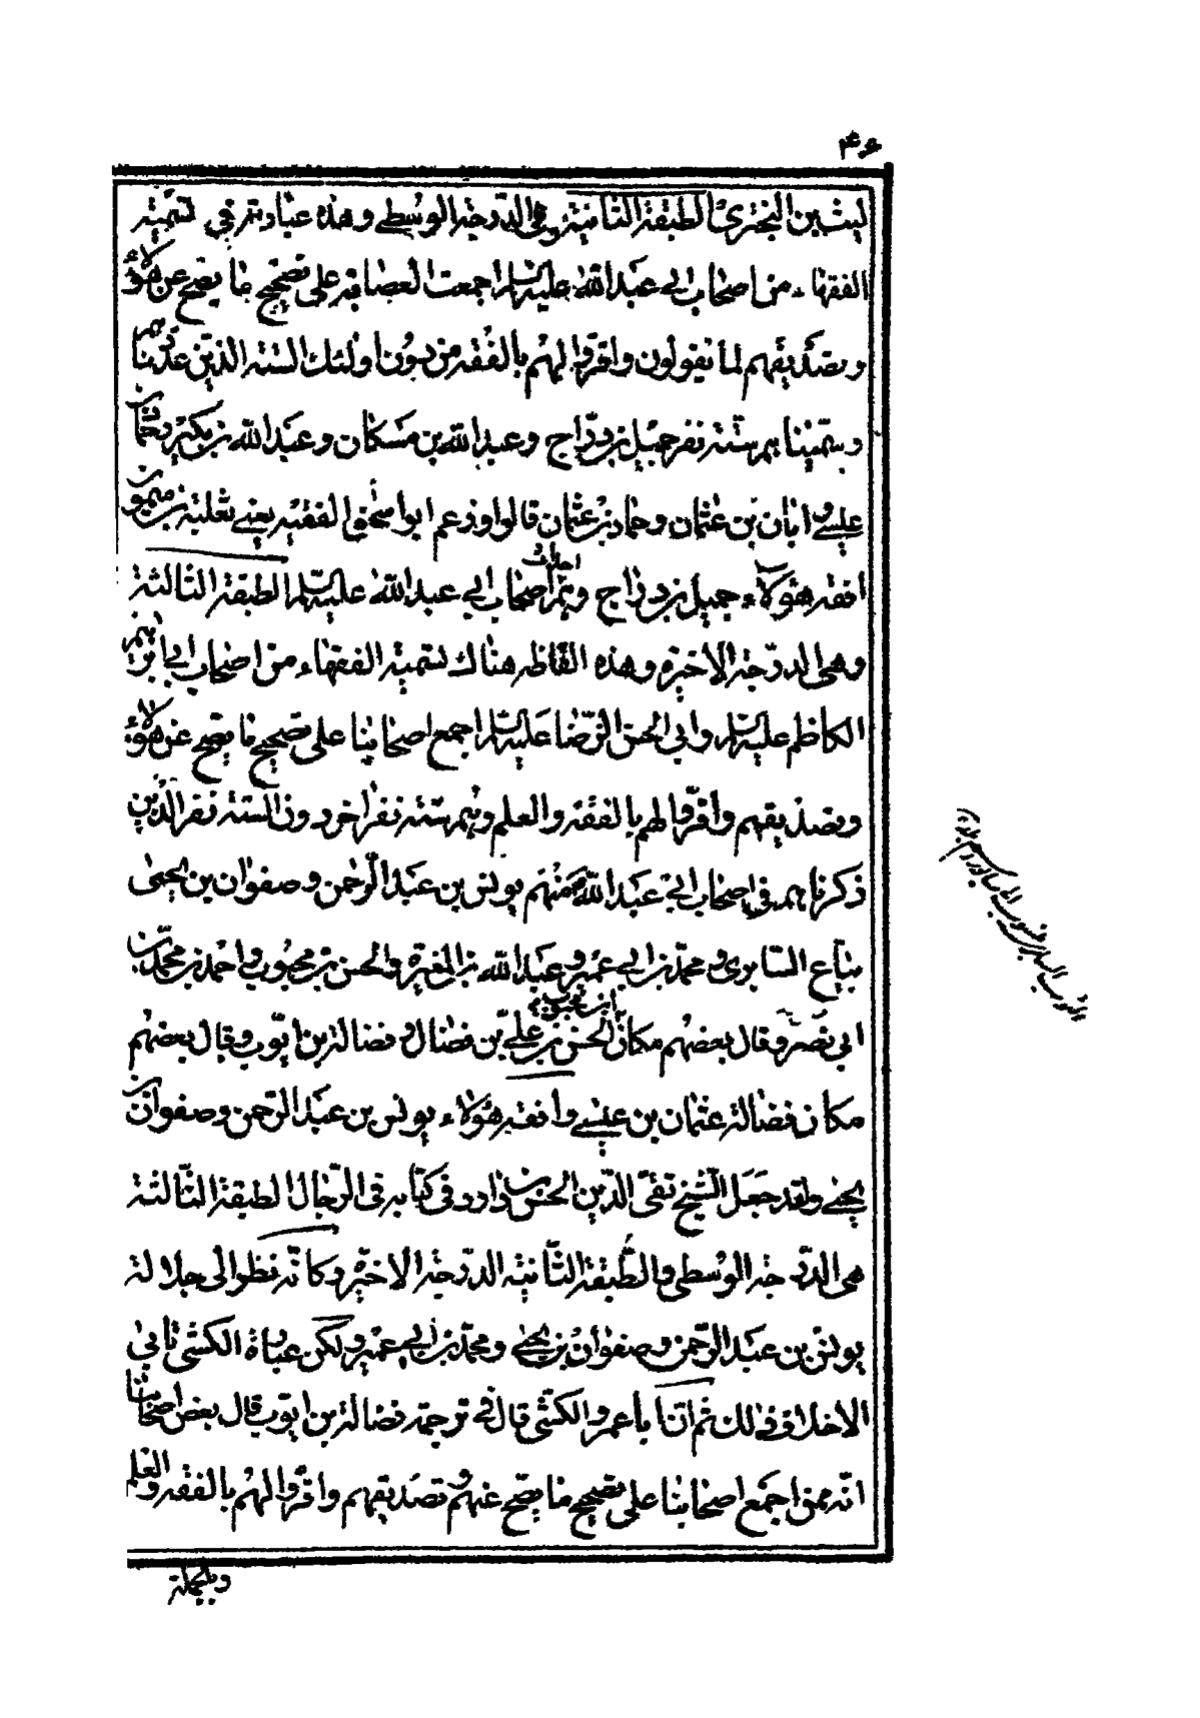 ۴۶
ليث بن البختري الطبقة الثانية وهي الدرجة الوسطى وهذه عبارته في تسمية
الفقهاء من اصحاب ابي عبد الله عليه السلم اجمعت العصابة على تصحيح ما يصح عن هؤلاء
وتصديقهم لما يقولون واقروا لهم بالفقه من دون اولئك الستة الذين عددناهم
وسميناهم ستة نفر جميل بن دراج وعبد الله بن مسكان وعبد الله بن بكير وحماد بن
عيسى وابان بن عثمان وحماد بن عثمان قالوا وزعم ابو اسحق الفقيه يعني ثعلبة بن ميمون
افقه هؤلاء جميل بن دراج وهم احداث اصحاب ابي عبد الله عليه السلم الطبقة الثالثة
وهي الدرجة الاخيرة وهذه الفاظه هناك تسمية الفقهاء من اصحاب ابي ابرهيم
الكاظم عليه السلم وابي الحسن الرضا عليه السلم اجمع اصحابنا على تصحيح ما يصح عن هؤلاء
وتصديقهم واقروا لهم بالفقه والعلم وهم ستة نفر اخر دون الستة نفر الذين
ذكرناهم في اصحاب ابي عبد الله منهم يونس بن عبد الرحمن وصفوان بن يحيى
بياع السابري ومحمد بن ابي عمير وعبد الله بن المغيرة والحسن بن محبوب واحمد بن محمد بن
ابي نصر وقال بعضهم مكان الحسن بن محبوب الحسن بن علي بن فضال وفضالة بن ايوب وقال بعضهم
مكان فضالة عثمان بن عيسى وافقه هؤلاء يونس بن عبد الرحمن وصفوان بن
يحيى ولقد جعل الشيخ تقي الدين الحسن بن داود في كتابه في الرجال الطبقة الثالثة
هي الدرجة الوسطى والطبقة الثانية الدرجة الاخيرة وكانه نظر الى جلالة
يونس بن عبد الرحمن وصفوان بن يحيى ومحمد بن ابي عمير ولكن عبارة الكشي تابى
الا خلاف ذلك ثم ان ابا عمرو الكشي قال في ترجمة فضالة بن ايوب قال بعض اصحابنا
انه ممن اجمع اصحابنا على تصحيح ما يصح عنهم وتصديقهم واقروا لهم بالفقه والعلم
وبالجملة